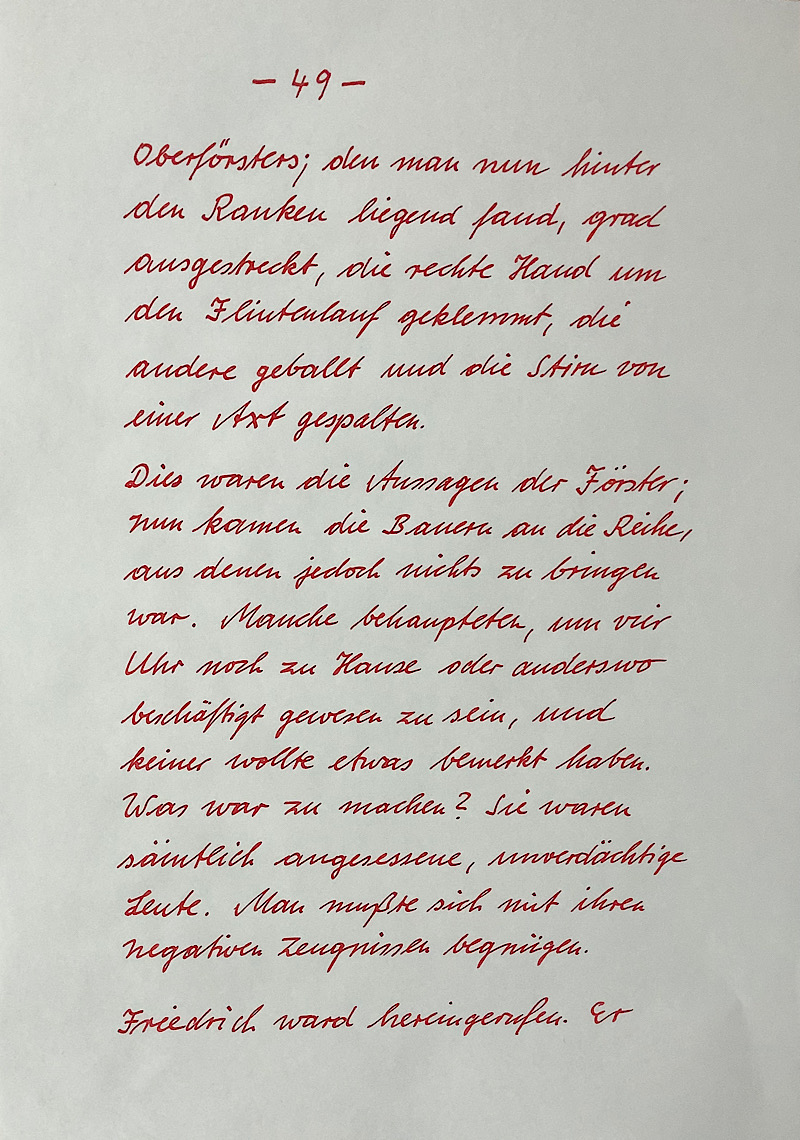 – 49 –
Oberförsters; den man nun hinter
den Ranken liegend fand, grad
ausgestreckt, die rechte Hand um
den Flintenlauf geklemmt, die
andere geballt und die Stirn von
einer Axt gespalten.
Dies waren die Aussagen der Förster;
nun kamen die Bauern an die Reihe,
aus denen jedoch nichts zu bringen
war. Manche behaupteten, um vier
Uhr noch zu Hause oder anderswo
beschäftigt gewesen zu sein, und
keiner wollte etwas bemerkt haben.
Was war zu machen? Sie waren
sämtlich angesessene, unverdächtige
Leute. Man mußte sich mit ihren
negativen Zeugnissen begnügen.
Friedrich ward hereingerufen. Er